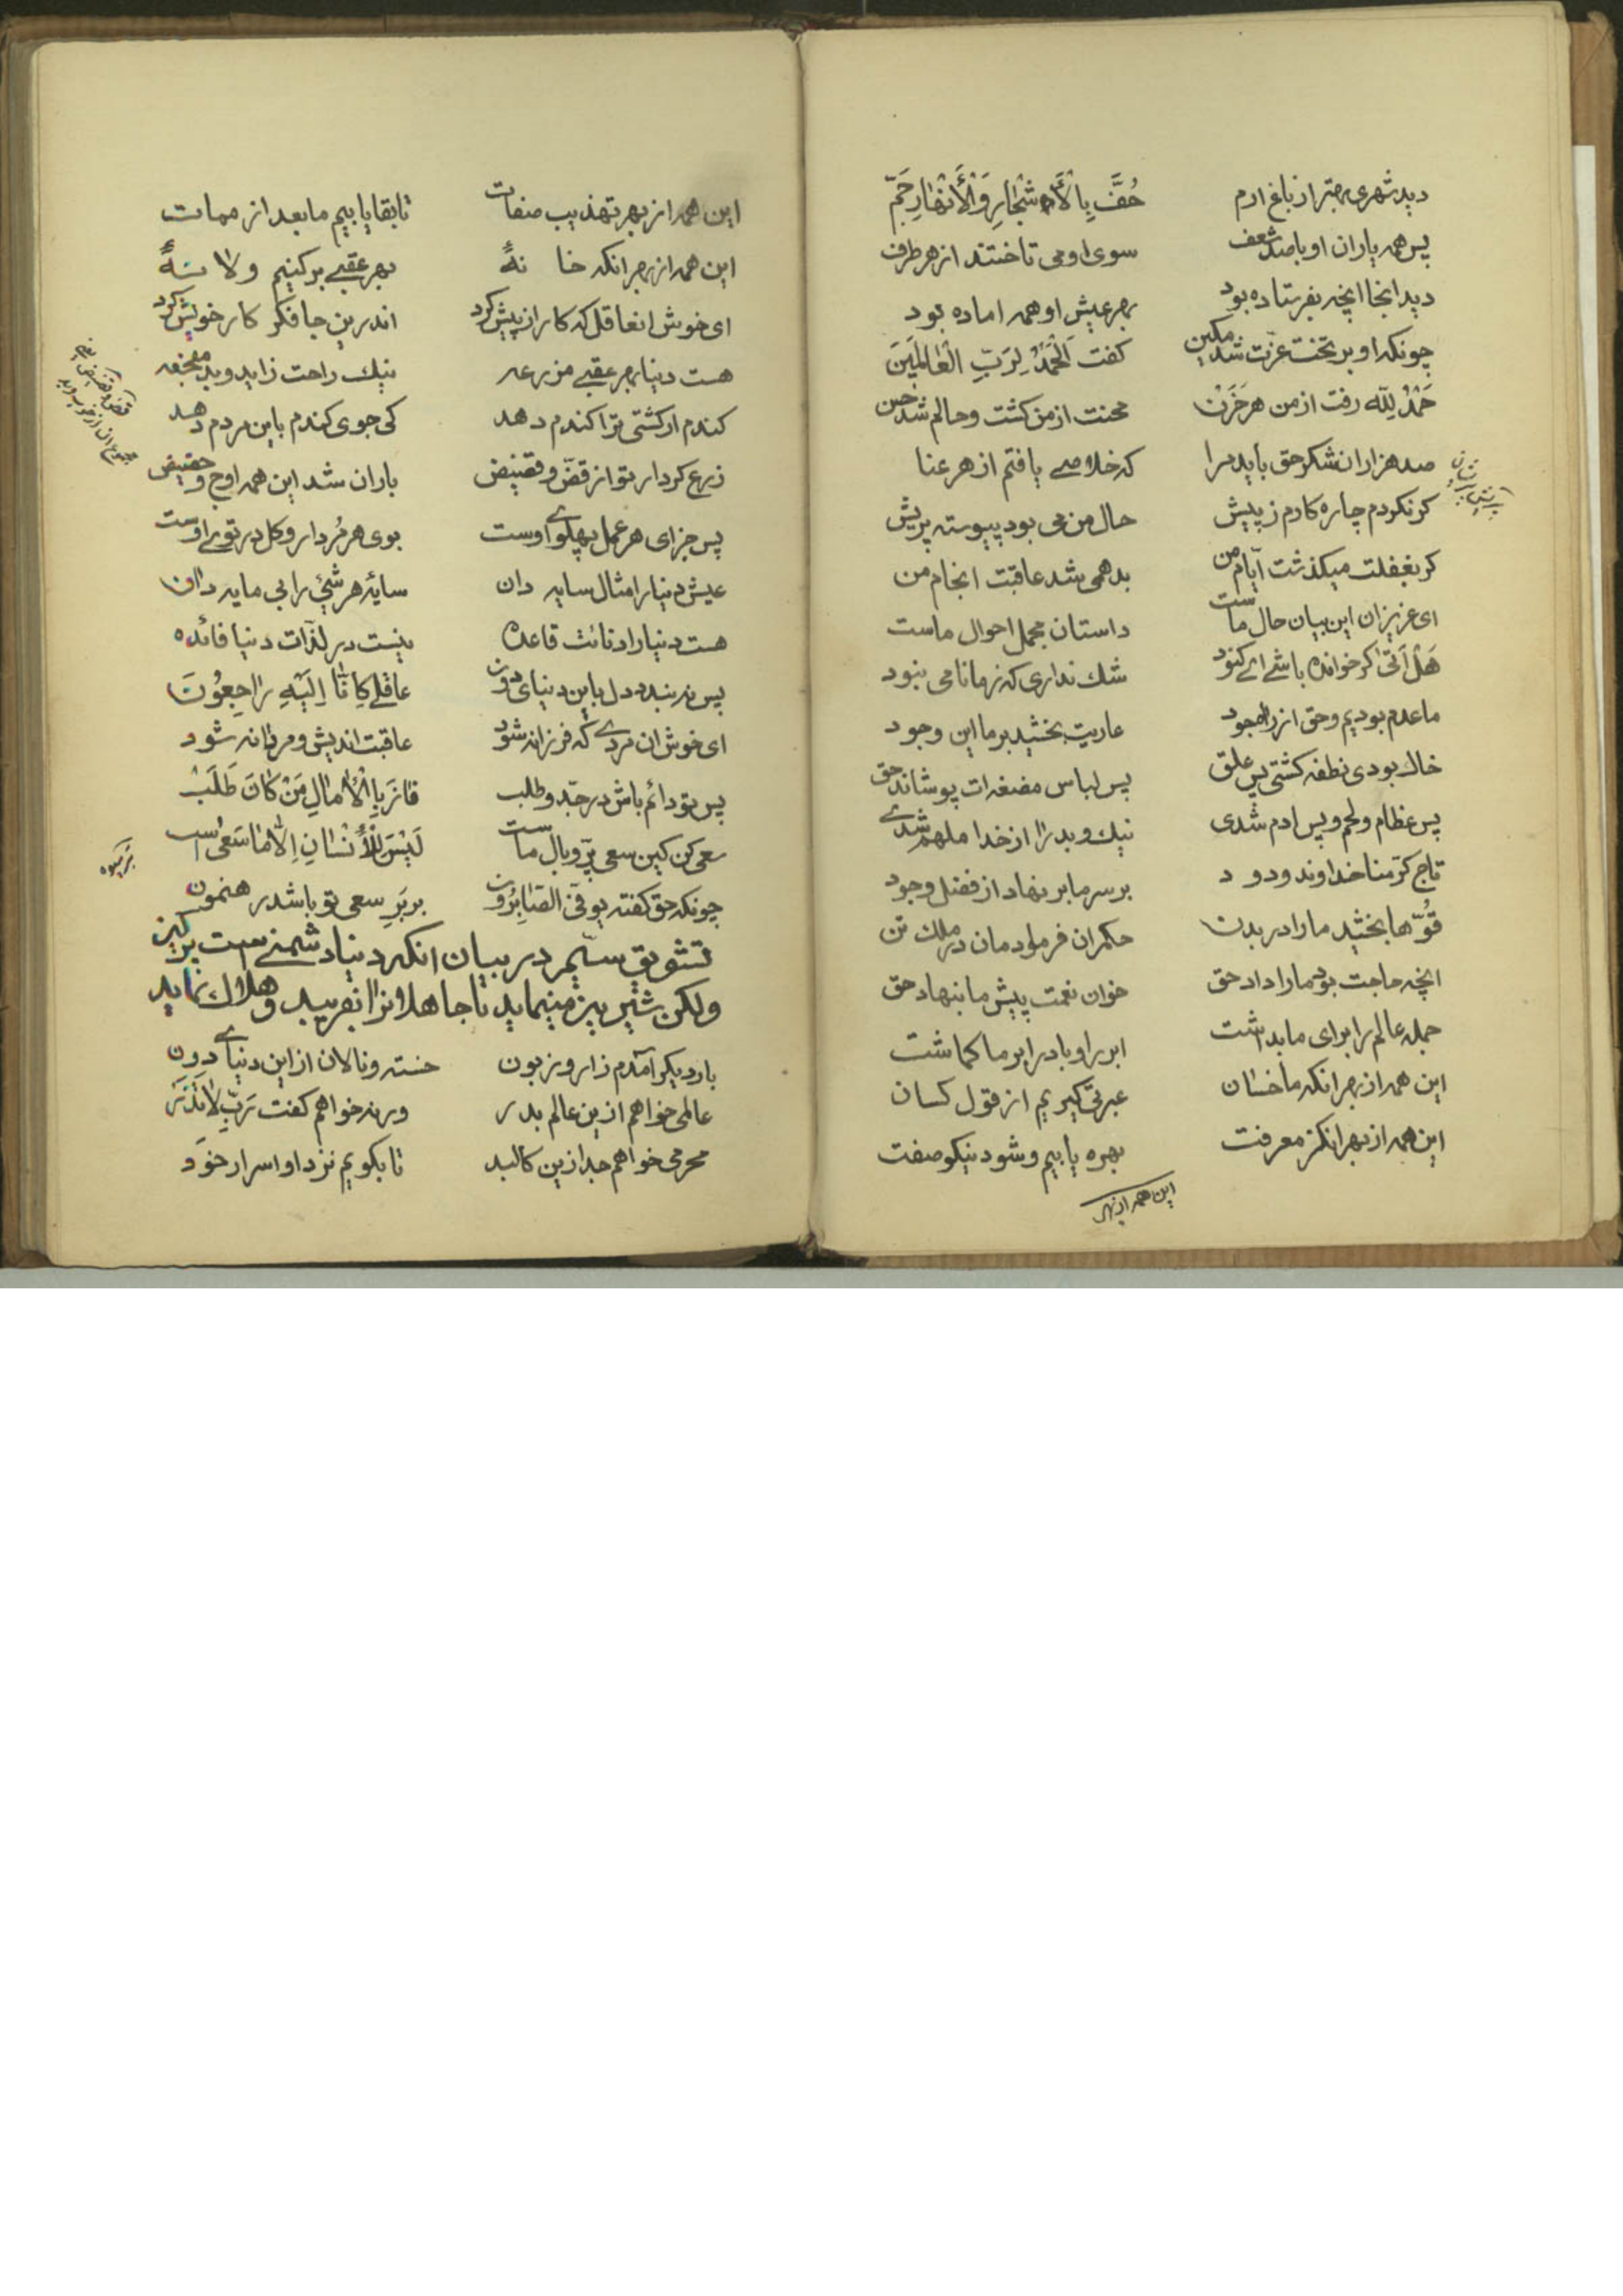 دید شهری بهتر از باغ ارم حُفَّ بِالْأَشْجَارِ وَالْأَنْهَارِ جَمّ
پس همه یاران او با صد شعف سوی او می تاختند از هر طرف
دید انجا انچه بفرستاده بود بهر عیش او همه اماده بود
چونکه او بر تخت عزّت شد مکین کفت اَلْحَمْدُ لِرَبِّ الْعَالَمِینَ
حَمْدُ لِلّه رفت از من هر حَزَنْ محنت از من کشت و حالم شد حسن
صد هزاران شکر حق باید مرا که خلاصے یافتم از هر عنا
کر نکردم چاره کارم ز پیش حال من می بود پیوسته پریش
کر بغفلت میکذشت ایّام من بد همی شد عاقبت انجام من
ای عزیزان این بیان حال ماست داستان مجمل احوال ماست
هَلْ اَتیٰ کر خوانده باشے اے کنود شك نداری که زمانا می نبود
ما عدم بودیم و حق از راه جود عاریت بخشید بر ما این وجود
خاك بودی نطفه کشتی پس علق پس لباس مضغه ات پوشاند حق
پس عظام و لحم و پس ادم شدی نیك و بد را از خدا ملهم شدے
تاج کرّمنا خداوند ودود بر سر ما بر نهاد از فضل وجود
قُوّها بخشید ما را در بدن حکمران فرمود مان در ملك تن
انچه حاجت بود ما را داد حق خوان نعمت پیش ما بنهاد حق
جمله عالم را برای ما بداشت ابر را و باد را بر ما کماشت
این همه از بهر انکه ما خسان عبرتی کیریم از قول کسان
این همه از بهر انکز معرفت بهره یابیم و شود نیکو صفت
این همه از بهر
این همه از بهر تهذیب صفات تا بقا یابیم ما بعد از ممات
این همه از بهر انکه خانهٔ بهر عقبے بر کنیم و لانهٔ
ای خوش انعاقل که کار از پیش کرد اندرین جا فکر کار خویش کرد
هست دنیا بهر عقبے مزرعه نیك راحت زاید و بد
کندم ار کشتی ترا کندم دهد کی جوی کندم باین مردم دهد
زرع کردار تو از قضّ و قضیض باران شد این همه اوج و حضیض
پس جزای هر عمل پهلوے اوست بوی هر مُردار و کل در توے اوست
عیش دنیا را مثال سایه دان سایهٔ هر شیٔ را بی مایه دان
هست دنیا را دنائت قاعده نیست در لذّات دنیا فائده
پس نه بندد دل باین دنیای دون عاقلے کِانّا اِلَیْهِ رَاجِعُوْنَ
ای خوش ان مردے که فرزانه شود عاقبت اندیش و مردانه شود
پس تو دائم باش در جدّ و طلب فَازَ بِالْأمَالِ مَنْ کَانَ طَلَبْ
سعی کن کین سعی پرّ و بال ماست لَیْسَ لِلْأنْسَانِ اِلّا مَا سَعیٰ است
چونکه حق کفته یوفّی الصّابِرُون بر بَرِ سعی تو باشد رهنمون
تشویق سیّم در بیان انکه دنیا دشمنے است
ولکن شیرین مینماید تا جاهلانرا بفریبد و هلاك نماید
بار دیکر آمدم زار و زبون خسته و نالان از این دنیاے دون
عالمی خواهم ازین عالم بدر ورنه خواهم کفت رَبِّ لَا تَذَرْ
محرمی خواهم جدا زین کالبد تا بکویم نزد او اسرار خوَد